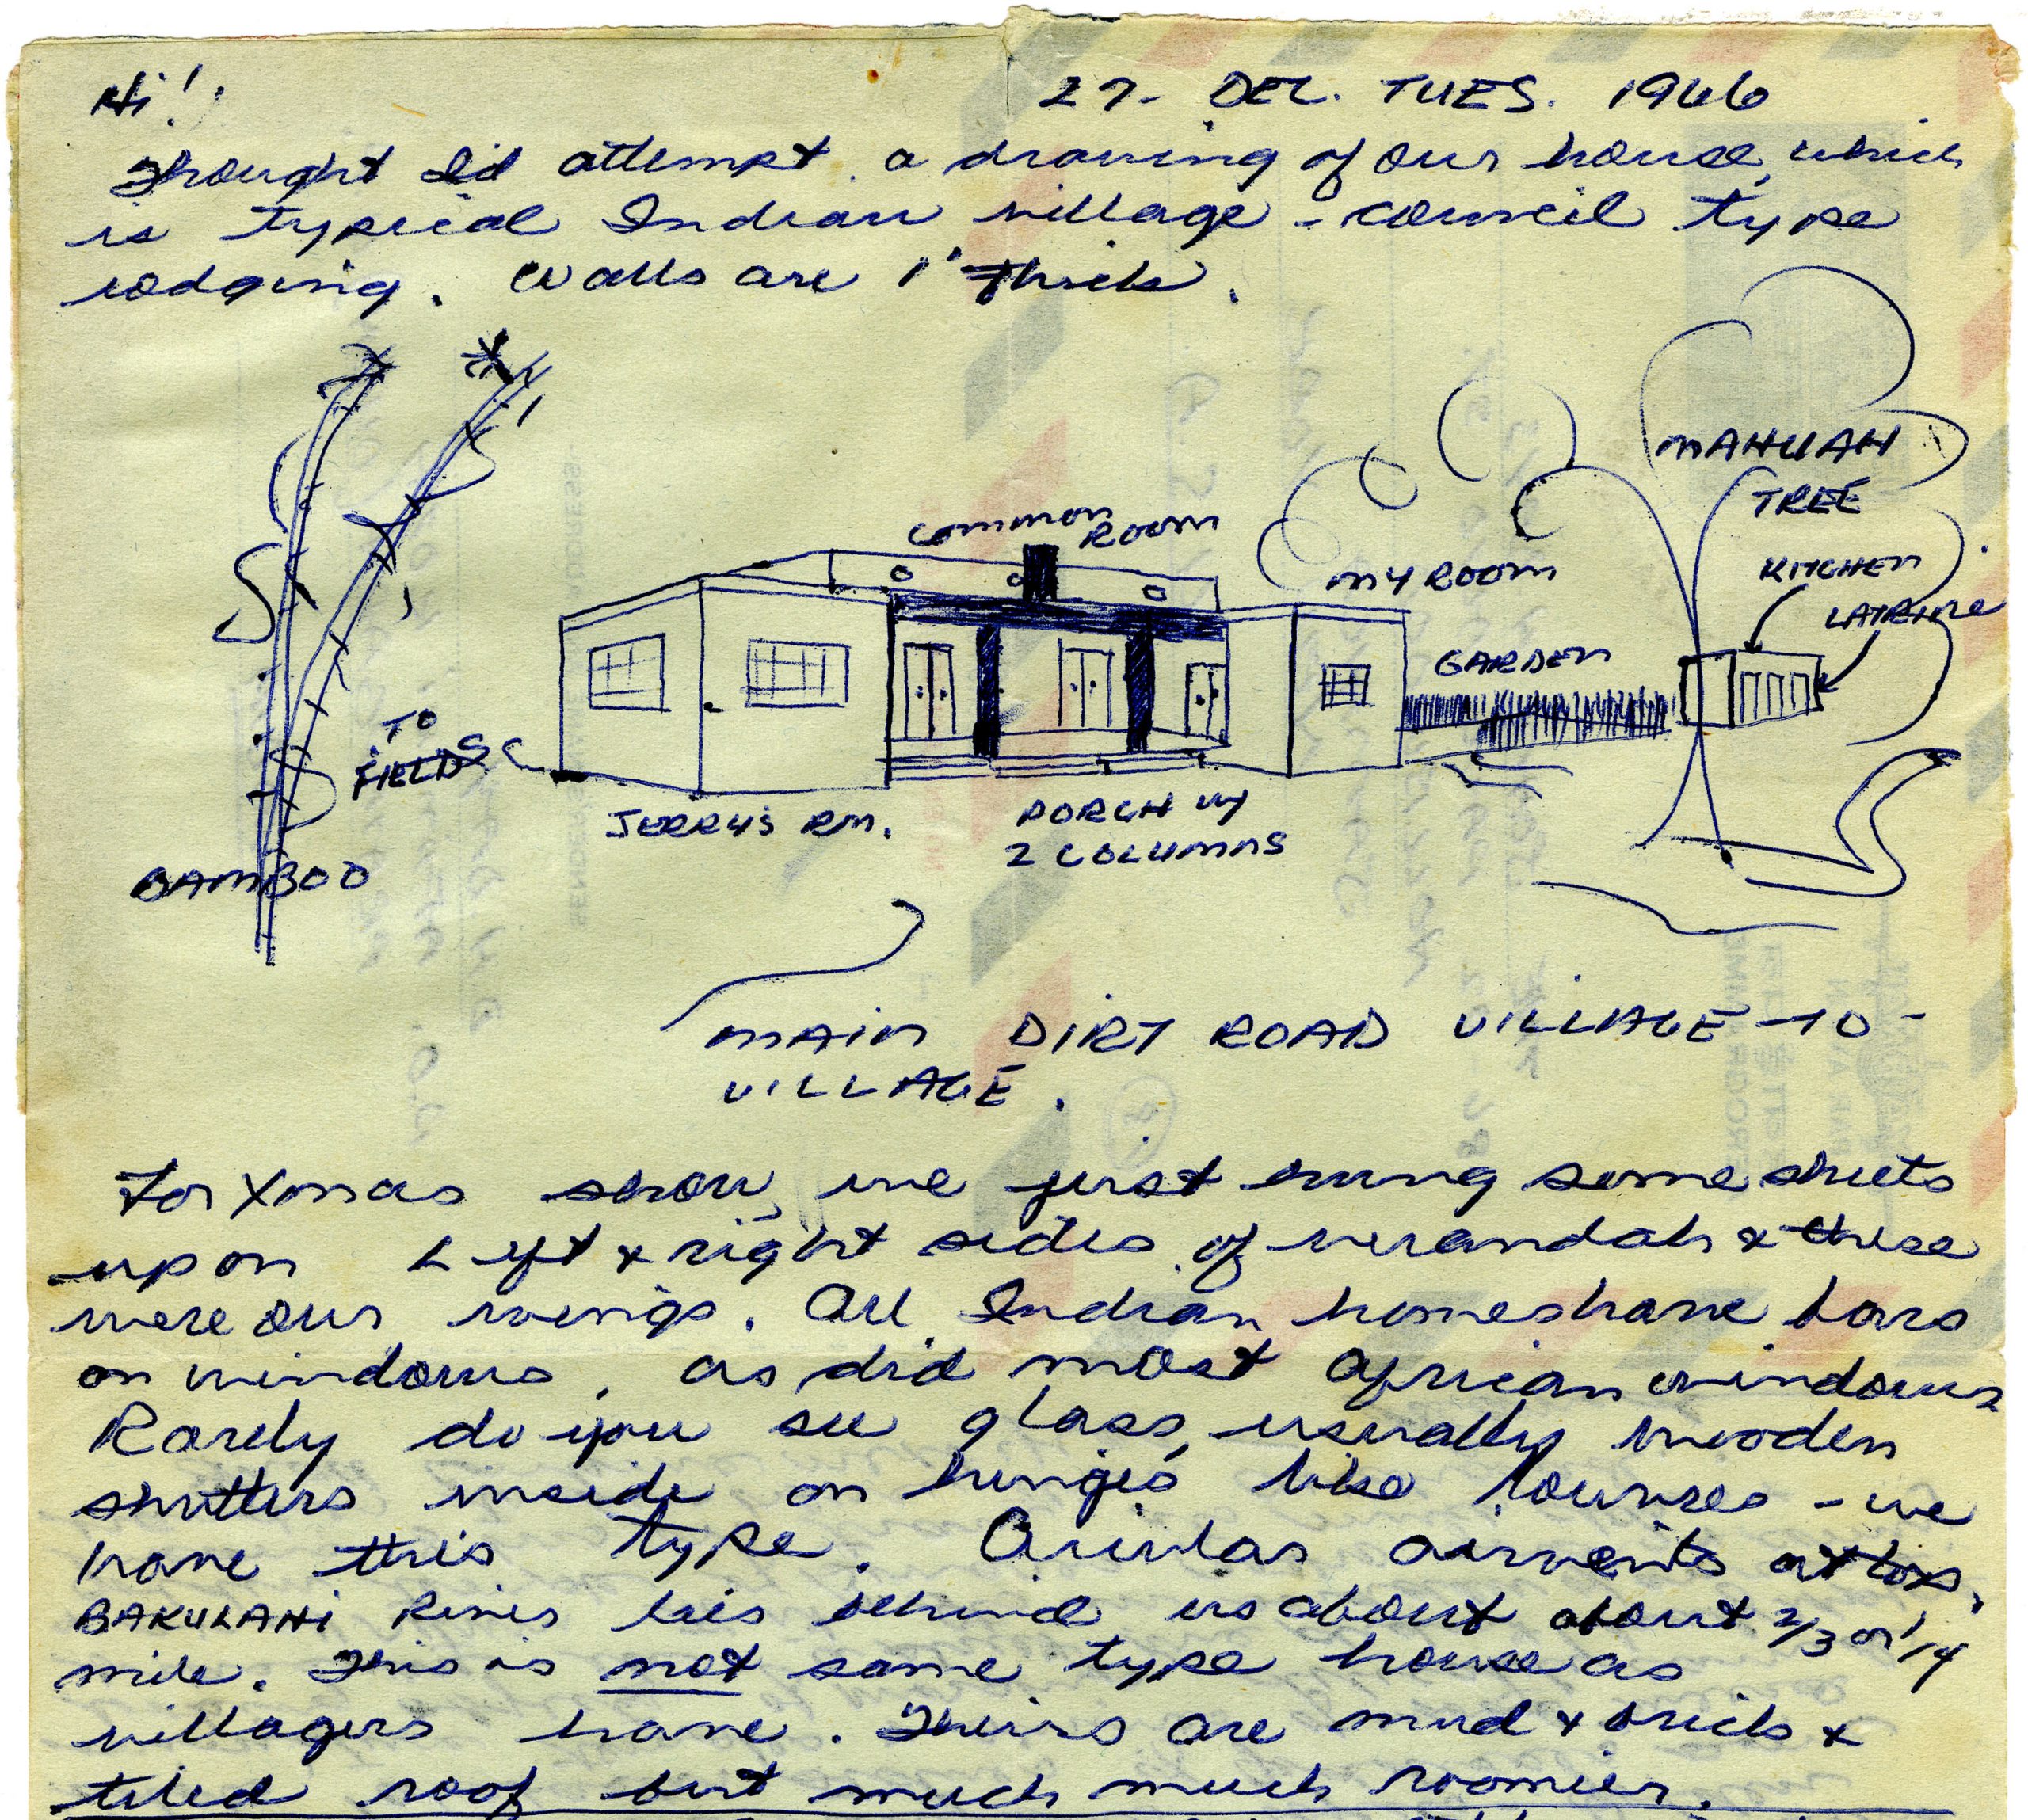 Hi!
27- DEC. TUES. 1966
Thought I'd attempt a drawing of our house, which
is typical Indian village-council type
lodging. Walls are 1' thick.
MAHUAH
TREE
COMMON
ROOM
MY ROOM
KITCHEN
LATRINE
GARDEN
TO
FIELDS
JERRY'S RM.
PORCH W/
2 COLUMNS
BAMBOO
MAIN DIRT ROAD VILLAGE-TO-
VILLAGE.
For Xmas show, we just hung some sheets
up on Left & right sides of verandah & these
were our wings. All Indian homes have bars
on windows, as did most African windows
Rarely do you see glass, usually wooden
shutters inside on hinges, like louvres - we
have this type. Circular airvents at top.
BAKULAHI River lies behind us about about 2/3 or 1/4
mile. This is not same type house as
villagers have. Theirs are mud & brick &
tiled roof but much much roomier.